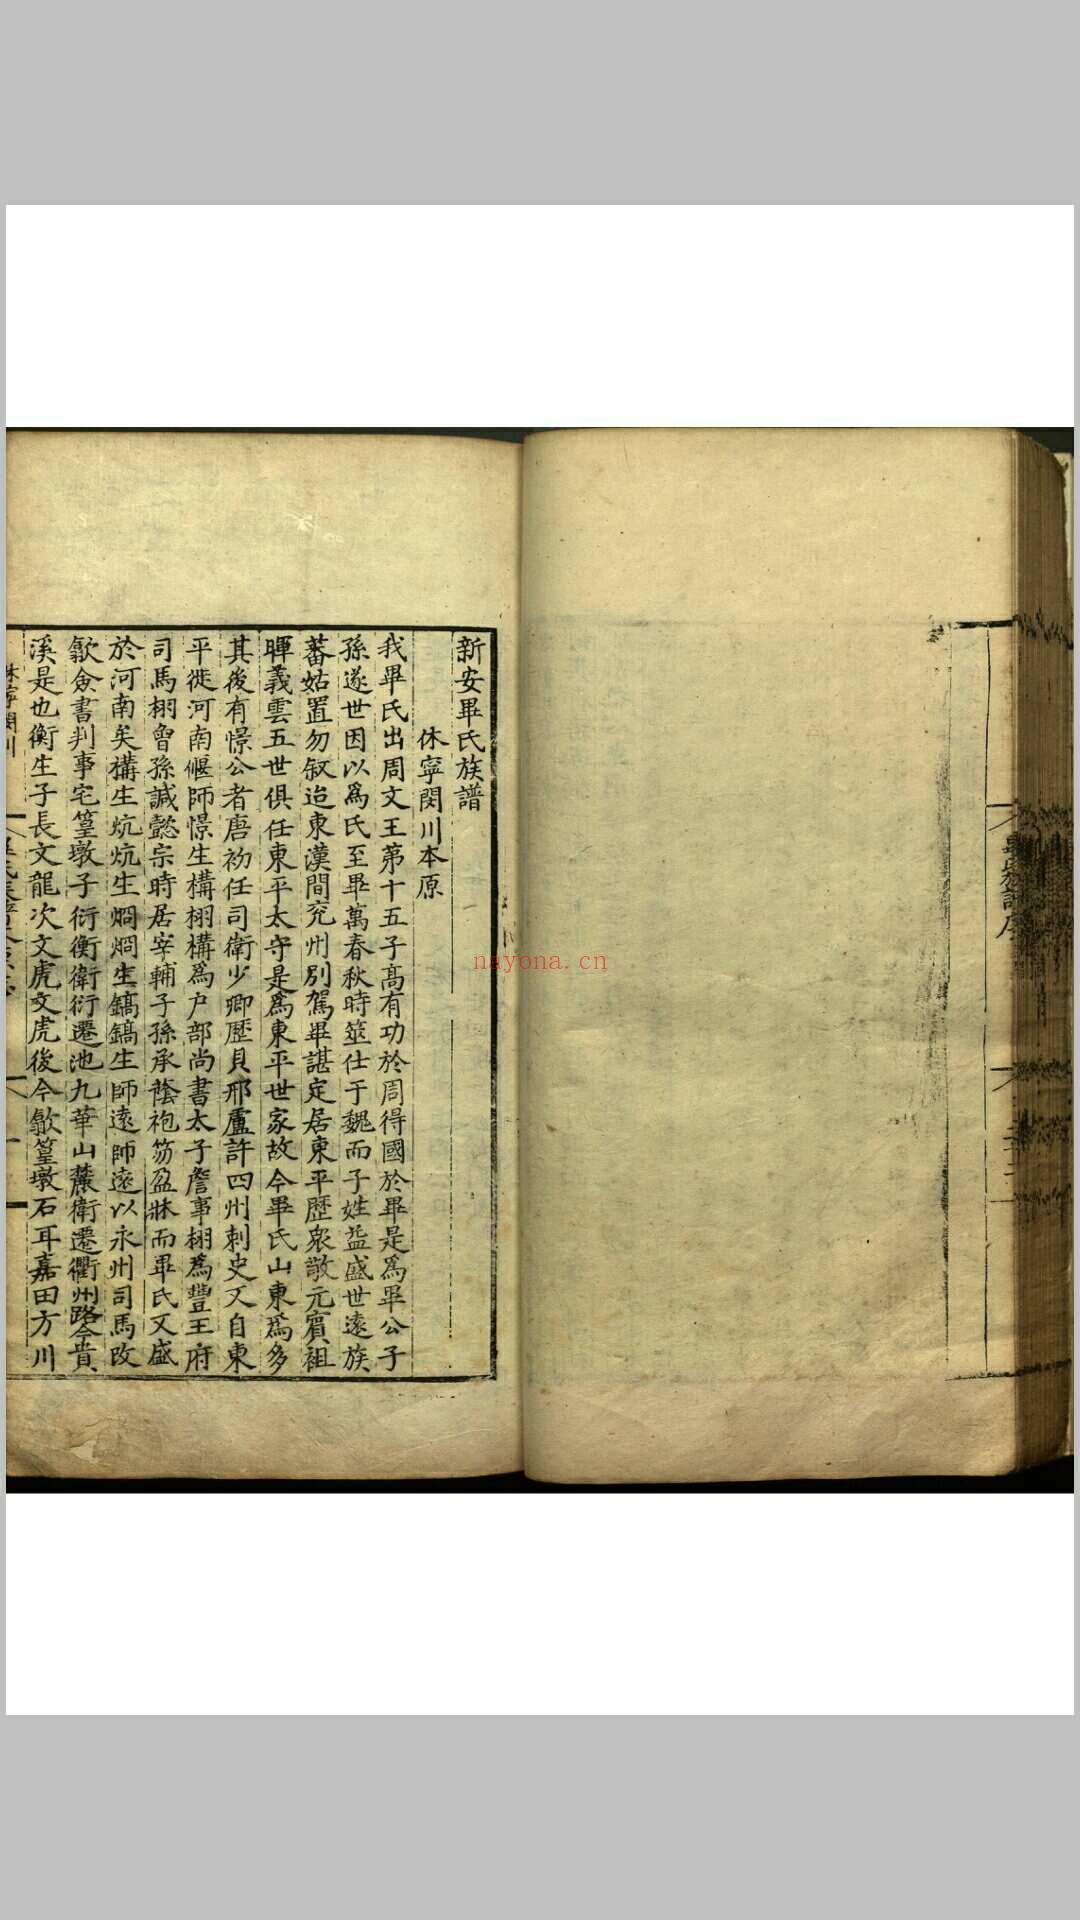 新安畢氏族譜
休寧閔川本原
我畢氏出周文王第十五子高有功於周得國於畢是爲畢公子
孫遂世因以爲氏至畢萬春秋時筮仕于魏而子姓益盛世遠族
蕃姑置勿叙迨東漢間兖州别駕畢諶定居東平歷衆敬元賓祖
暉義雲五世俱任東平太守是爲東平世家故今畢氏山東爲多
其後有憬公者唐初任司衛少卿歷貝邢廬許四州刺史又自東
平徙河南偃師憬生構栩構爲户部尚書太子詹事栩爲豐王府
司馬栩曾孫諴懿宗時居宰輔子孫承蔭袍笏盈牀而畢氏又盛
於河南矣構生炕炕生烱烱生鎬鎬生師遠師遠以永州司馬改
歙僉書判事宅篁墩子衍衡衛衍遷池九華山麓衛遷衢州路今貴
溪是也衡生子長文龍次文虎文虎後今歙篁墩石耳嘉田方川
休寧閔川
nayona.cn